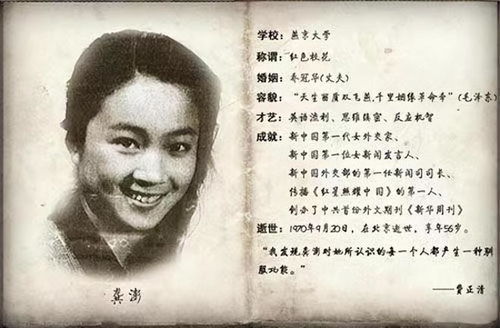 龚澎
学校：燕京大学
称谓：红色校花
婚姻：乔冠华(丈夫)
容貌：“天生丽质双飞燕,千里姻缘革命牵”(毛泽东)
才艺：英语流利、思维缜密、反应机智
成就：新中国第一代女外交家、
新中国第一位女新闻发言人、
新中国外交部的第一任新闻司司长、
传播《红星照耀中国》的第一人、
创办了中共首份外文期刊《新华周刊》
逝世：1970年9月20日，在北京逝世，享年56岁。
“我发现龚澎对她所认识的每一个人都产生一种驯
服功能。”
——费正清